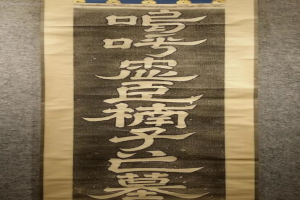 嗚呼忠臣楠子之墓